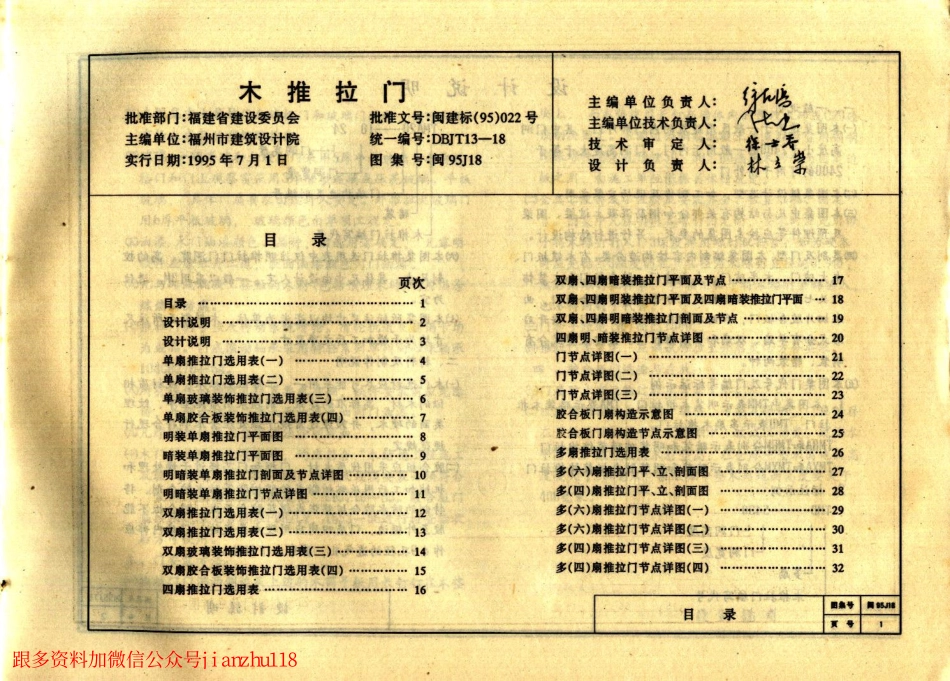 木推拉门
批准部门：福建省建设委员会
批准文号：闽建标(95)022号
主编单位：福州市建筑设计院
统一编号：DBJT13—18
实行日期：1995年7月1日
图集号：闽95J18
主编单位负责人：
主编单位技术负责人：
技术审定人：
设计负责人：
目录
页次
目录 1
设计说明 2
设计说明 3
单扇推拉门选用表(一) 4
单扇推拉门选用表(二) 5
单扇玻璃装饰推拉门选用表(三) 6
单扇胶合板装饰推拉门选用表(四) 7
明装单扇推拉门平面图 8
暗装单扇推拉门平面图 9
明暗装单扇推拉门剖面及节点详图 10
明暗装单扇推拉门节点详图 11
双扇推拉门选用表(一) 12
双扇推拉门选用表(二) 13
双扇玻璃装饰推拉门选用表(三) 14
双扇胶合板装饰推拉门选用表(四) 15
四扇推拉门选用表 16
双扇、四扇暗装推拉门平面及节点 17
双扇、四扇明装推拉门平面及四扇暗装推拉门平面 18
双扇、四扇明暗装推拉门剖面及节点 19
四扇明、暗装推拉门节点详图 20
门节点详图(一) 21
门节点详图(二) 22
门节点详图(三) 23
胶合板门扇构造示意图 24
胶合板门扇构造节点示意图 25
多扇推拉门选用表 26
多(六)扇推拉门平、立、剖面图 27
多(四)扇推拉门平、立、剖面图 28
多(六)扇推拉门节点详图(一) 29
多(六)扇推拉门节点详图(二) 30
多(四)扇推拉门节点详图(三) 31
多(四)扇推拉门节点详图(四) 32
目录
图集号 闽95J18
页号 1
跟多资料加微信公众号jianzhu118